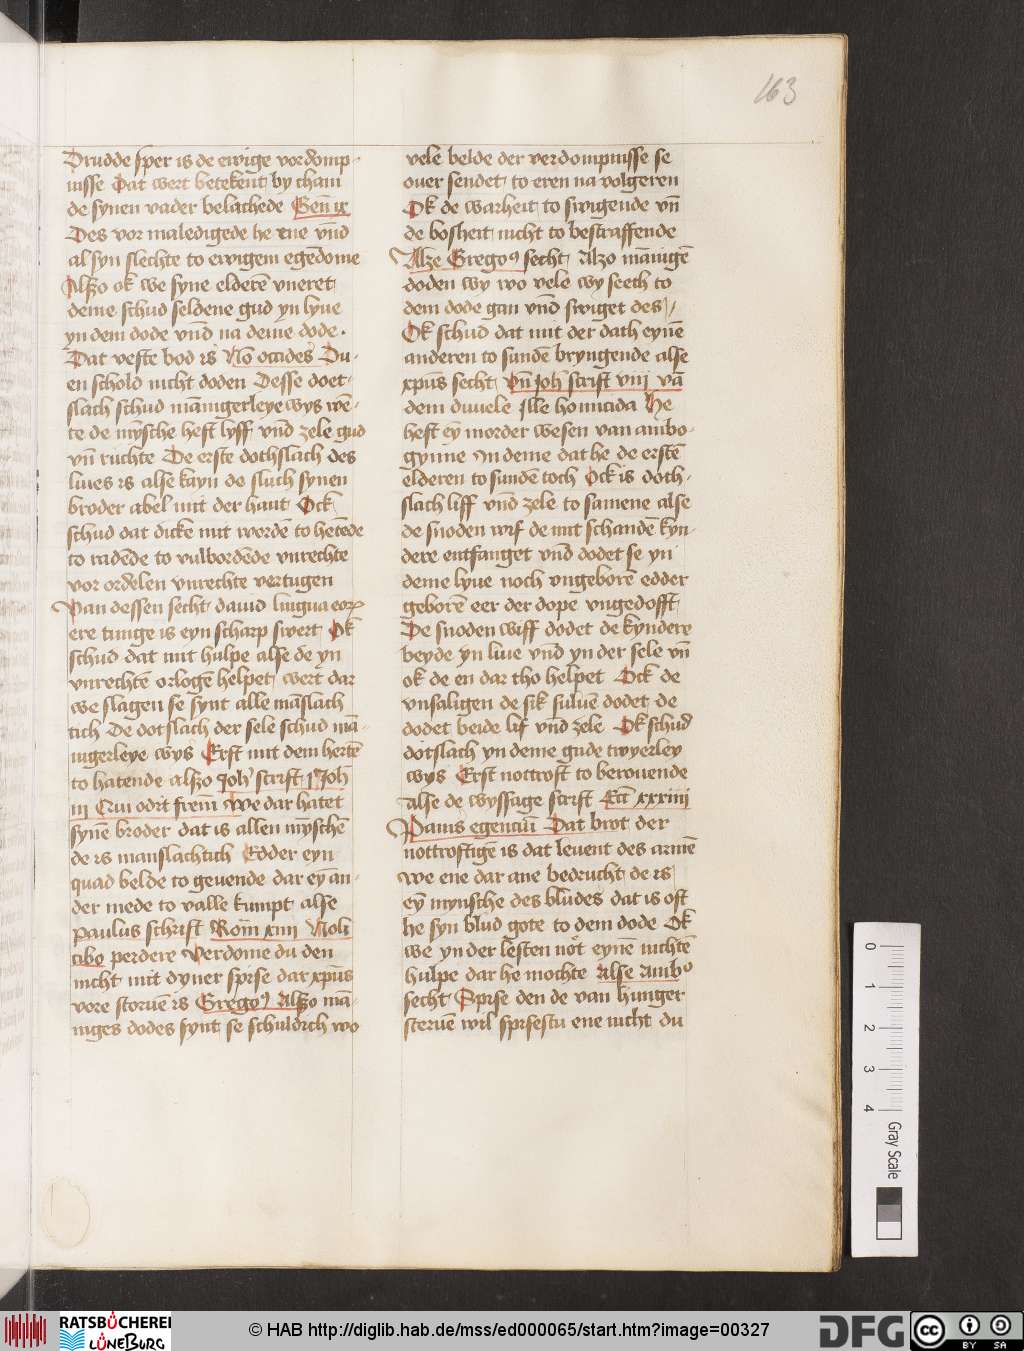 163
Drudde sper is de ewige vordomp-
nisse Dat wert betekent by cham
de synen vader belachede Gen̄ ix
Des vor maledigede he ene vn̄d
al syn slechte to ewigem egēdome
Alßo ok we syne elderē vneret
deme schud seldene gud yn lyue
yn dem dode vn̄d na deme dode.
Dat vefte bod is No̅ occides Du-
en schold nicht doden Desse doet-
slach schud mānigerleye wys wē-
te de mȳsche heft lyff vn̄d zele gud
vn̄ ruchte De erste dothslach des
liues is alse kayn de sluch synen
broder abel mit der hant Ock
schud dat dicke mit wordē to hetēde
to radēde to vulbordēde vnrechte
vor ordelen vnrechte vertugen
Van dessen secht dauid lingua eoꝝ
ere tunge is eyn scharp swert Ok
schud dat mit hulpe alse de yn
vnrechtē orlogē helpet wert dar
we slagen se synt alle māslach
tich De dotslach der sele schud mā-
nigerleye wys Erst mit dem hertē
to hatende alßo Joh̄ scrift j Joh̄
iij Qui odit frem̄ we dar hatet
synē broder dat is allen mȳschē
de is manslachtich Edder eyn
quad belde to geuende dar eȳ an-
der mede to valle kumpt alse
paulus schrift Rom̄ xiiij Noli
cibo perdere Verdome du den
nicht mit dyner spise dar xp̄us
vore storuē is Gregoꝰ Alßo mā-
niges dodes synt se schuldich wo
vele belde der verdompnisse se
ouer sendet to eren na volgeren
Ok de warheit to swigende vn̄
de bosheit nicht to bestraffende
Alze Gregoꝰ secht Alzo mānigē
doden wy wo vele wy seeth to
dem dode gan vn̄d swiget des
Ok schud dat mit der dath eynē
anderen to sundē bryngende alse
xp̄us secht vn̄ joh̄ scrift viij vā
dem duuele Ille homicida He
heft eȳ morder wesen van anbo-
gynne yn deme dat he de erstē
elderen to sundē toch Ock is doth-
slach liff vn̄d zele to samene alse
de snoden wif de mit schandē kyn-
dere entfanget vn̄d dodet se yn
deme lyue noch vngeborē edder
geborē eer der dope vngedofft
De snoden wiff dodet de kyndere
beyde yn liue vn̄d yn der sele vn̄
ok de en dar tho helpet Ock de
vnsaligen de sik suluē dodet de
dodet beide lif vn̄d zele Ok schud
dotslach yn deme gude twyerley
wys Erst nottroft to berouende
alse de wyssage scrift Ecc̄ xxxiiij
Panis egenciū Dat brot der
nottroftigē is dat leuent des armē
we ene dar ane bedrucht de is
eȳ mynsche des bludes dat is oft
he syn blud gote to dem dode Ok
we yn der lesten not eynē nichtē
hulpe dar he mochte alse Amboꝰ
secht Spise den de van hunger
steruē wil spisestu ene nicht du
0
1
2
3
4
Gray Scale
RATSBÜCHEREI
LÜNEBURG
© HAB http://diglib.hab.de/mss/ed000065/start.htm?image=00327
DFG
cc
BY
SA